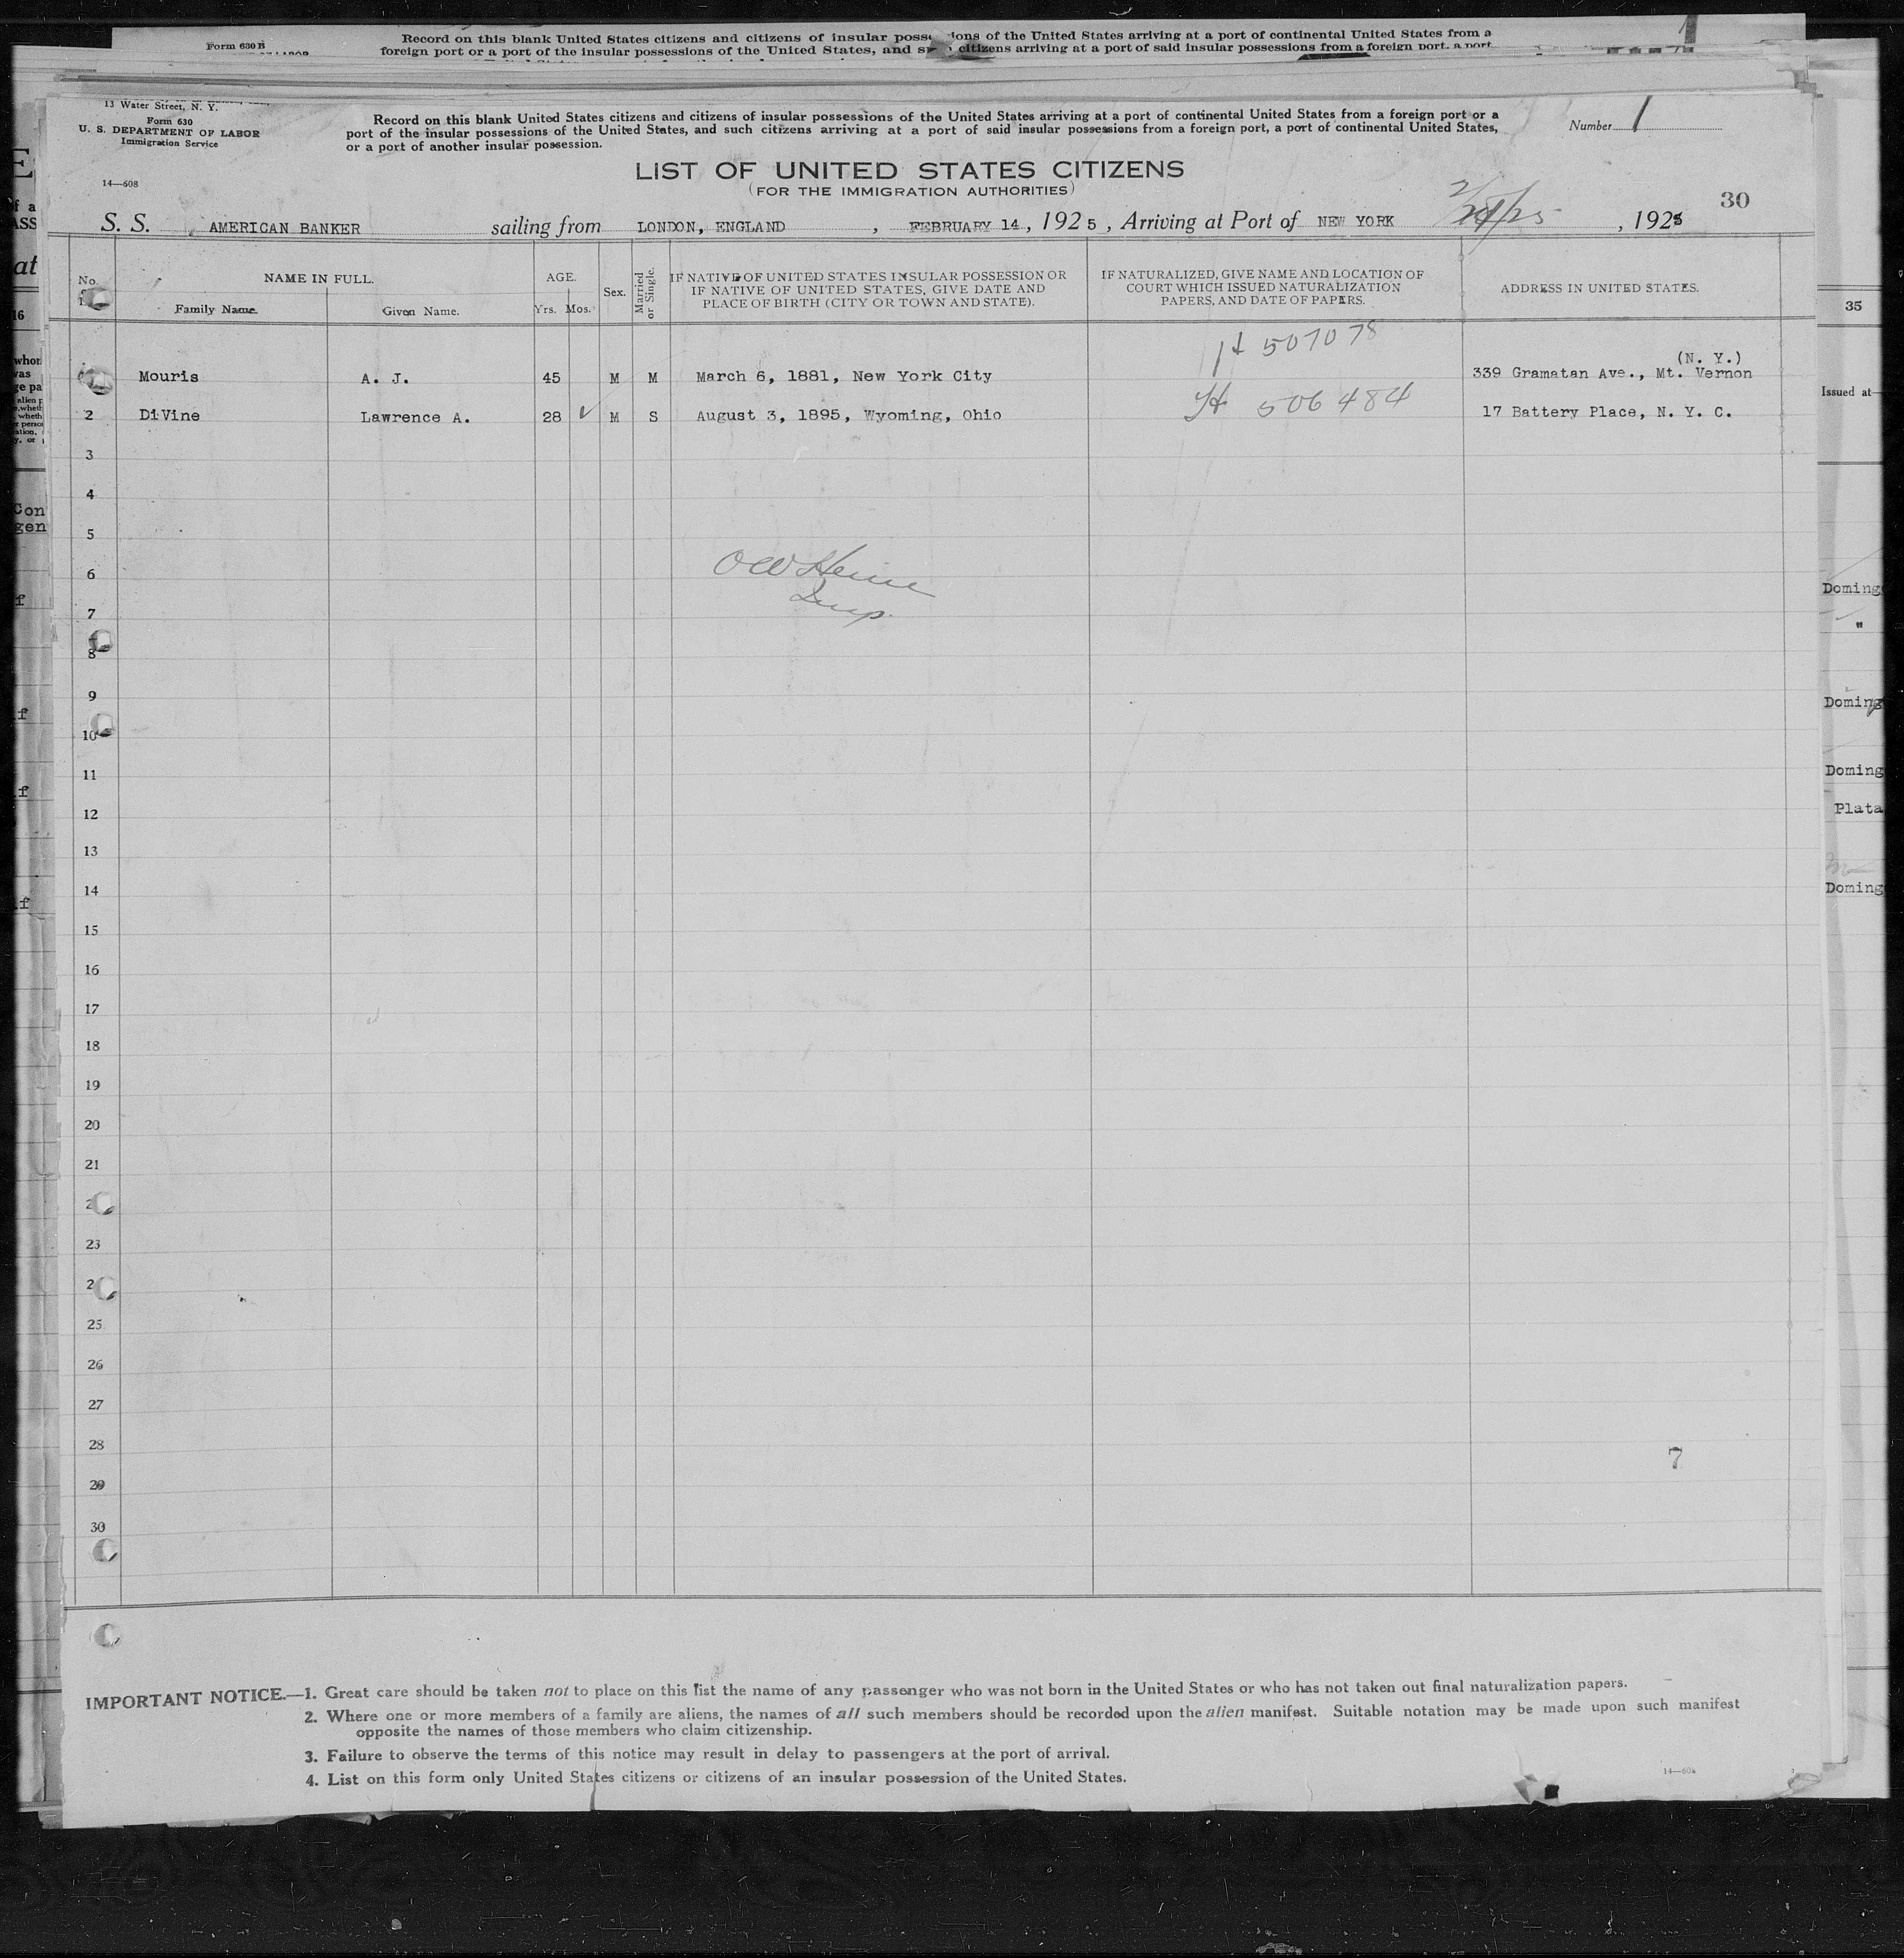 Form 630 B
Record on this blank United States citizens and citizens of insular of the United States arriving at a port of continental United States from a
foreign port or a port of the insular possessions of the United States, and citizens arriving at a port of said insular possessions from a foreign port, a port
13 Water Street, N. Y.
Form 630
U. S. DEPARTMENT OF LABOR
Immigration Service
14—608
Record on this blank United States citizens and citizens of insular possessions of the United States arriving at a port of continental United States from a foreign port or a
port of the insular possessions of the United States, and such citizens arriving at a port of said insular possessions from a foreign port, a port of continental United States,
or a port of another insular possession.
Number 1
LIST OF UNITED STATES CITIZENS
(FOR THE IMMIGRATION AUTHORITIES)
30
S. S. AMERICAN BANKER sailing from LONDON, ENGLAND, FEBRUARY 14, 1925, Arriving at Port of NEW YORK , 1925
No.
NAME IN FULL.
Family Name.
Given Name.
AGE.
Yrs. Mos.
Sex.
Married or Single.
IF NATIVE OF UNITED STATES INSULAR POSSESSION OR
IF NATIVE OF UNITED STATES, GIVE DATE AND
PLACE OF BIRTH (CITY OR TOWN AND STATE).
IF NATURALIZED, GIVE NAME AND LOCATION OF
COURT WHICH ISSUED NATURALIZATION
PAPERS, AND DATE OF PAPERS.
ADDRESS IN UNITED STATES.
507078
(N. Y.)
Mouris A. J. 45 M M March 6, 1881, New York City 339 Gramatan Ave., Mt. Vernon
2 DiVine Lawrence A. 28 ✓ M S August 3, 1895, Wyoming, Ohio 506484 17 Battery Place, N. Y. C.
3
4
5
6
7
8
9
10
11
12
13
14
15
16
17
18
19
20
21
23
25
26
27
28
7
29
30
IMPORTANT NOTICE.—1. Great care should be taken not to place on this list the name of any passenger who was not born in the United States or who has not taken out final naturalization papers.
2. Where one or more members of a family are aliens, the names of all such members should be recorded upon the alien manifest. Suitable notation may be made upon such manifest
opposite the names of those members who claim citizenship.
3. Failure to observe the terms of this notice may result in delay to passengers at the port of arrival.
4. List on this form only United States citizens or citizens of an insular possession of the United States.
14—608
35
Issued at—
Doming
"
Doming
Doming
Plata
Doming